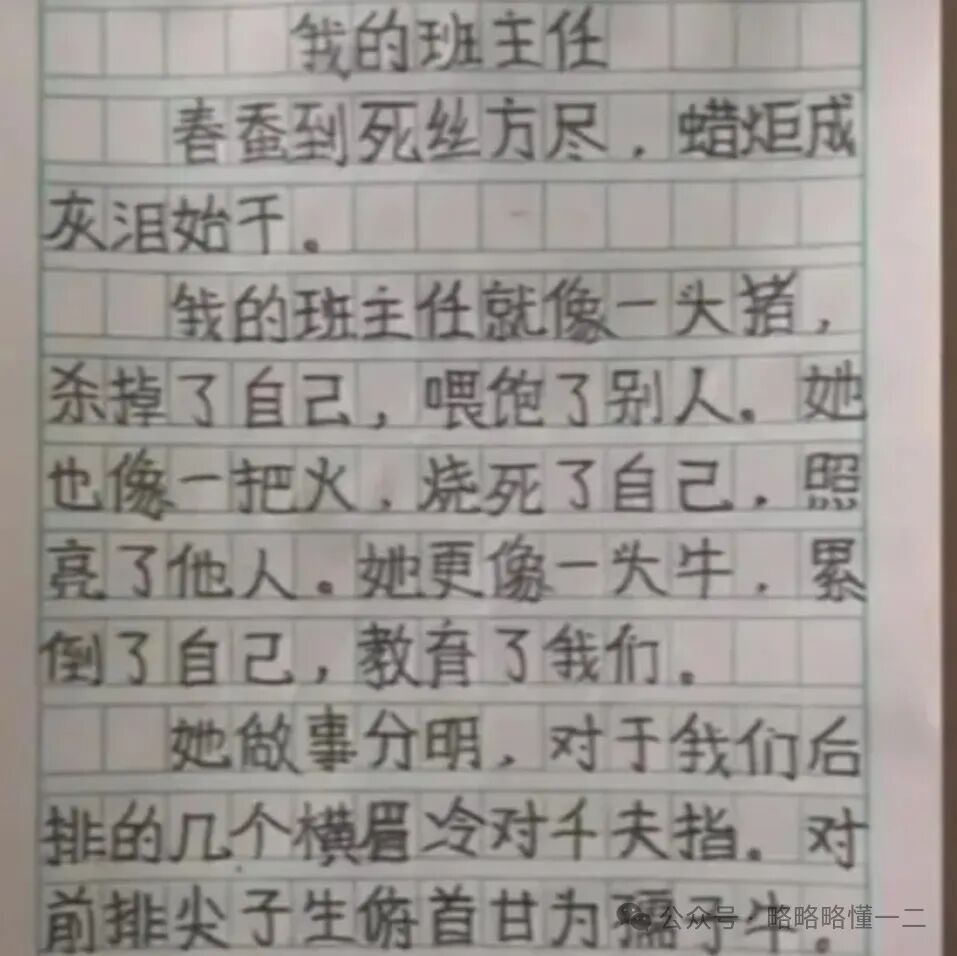 我的班主任
春蚕到死丝方尽，蜡炬成
灰泪始干。
我的班主任就像一头猪，
杀掉了自己，喂饱了别人。她
也像一把火，烧死了自己，照
亮了他人。她更像一头牛，累
倒了自己，教育了我们。
她做事分明，对于我们后
排的几个横眉冷对千夫指。对
前排尖子生俯首甘为孺子牛。
公众号·略略略懂一二